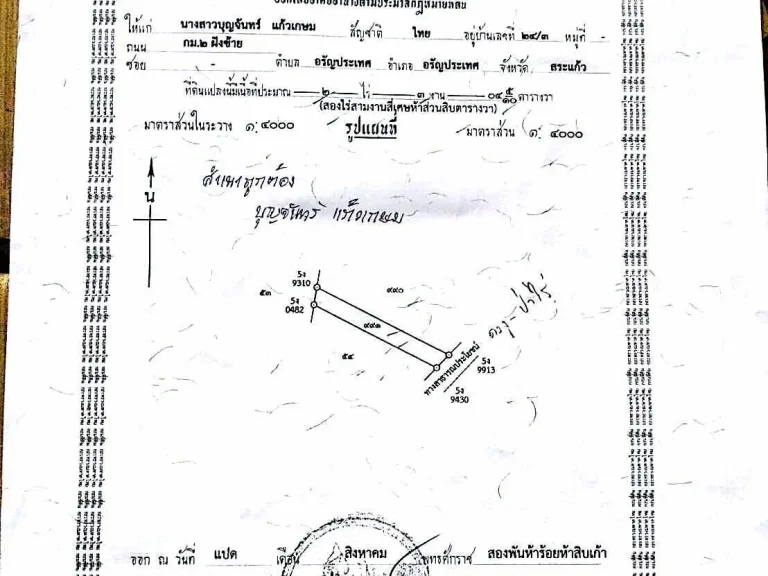 ให้แก่ นางสาวบุญจันทร์ แก้วเกษม สัญชาติ ไทย อยู่บ้านเลขที่ ๒๔/๓ หมู่ที่ -
ถนน กม.๒ ฝั่งซ้าย
ซอย - ตำบล อรัญประเทศ อำเภอ อรัญประเทศ จังหวัด สระแก้ว
ที่ดินแปลงนี้มีเนื้อที่ประมาณ ๒ ไร่ ๓ งาน ๐๔ ๕/๑๐ ตารางวา
(สองไร่สามงานสี่เศษห้าส่วนสิบตารางวา)
มาตราส่วนในระวาง ๑: ๔๐๐๐ รูปแผนที่ มาตราส่วน ๑: ๔๐๐๐
น
สำเนาถูกต้อง
บุญจันทร์ แก้วเกษม
5ง
9310
๙๙๐
๕๓
5ง
0482
๙๙๑
๕๔
ทางสาธารณประโยชน์
5ง
9913
5ง
9430
ออก ณ วันที่ แปด เดือน สิงหาคม พุทธศักราช สองพันห้าร้อยห้าสิบเก้า